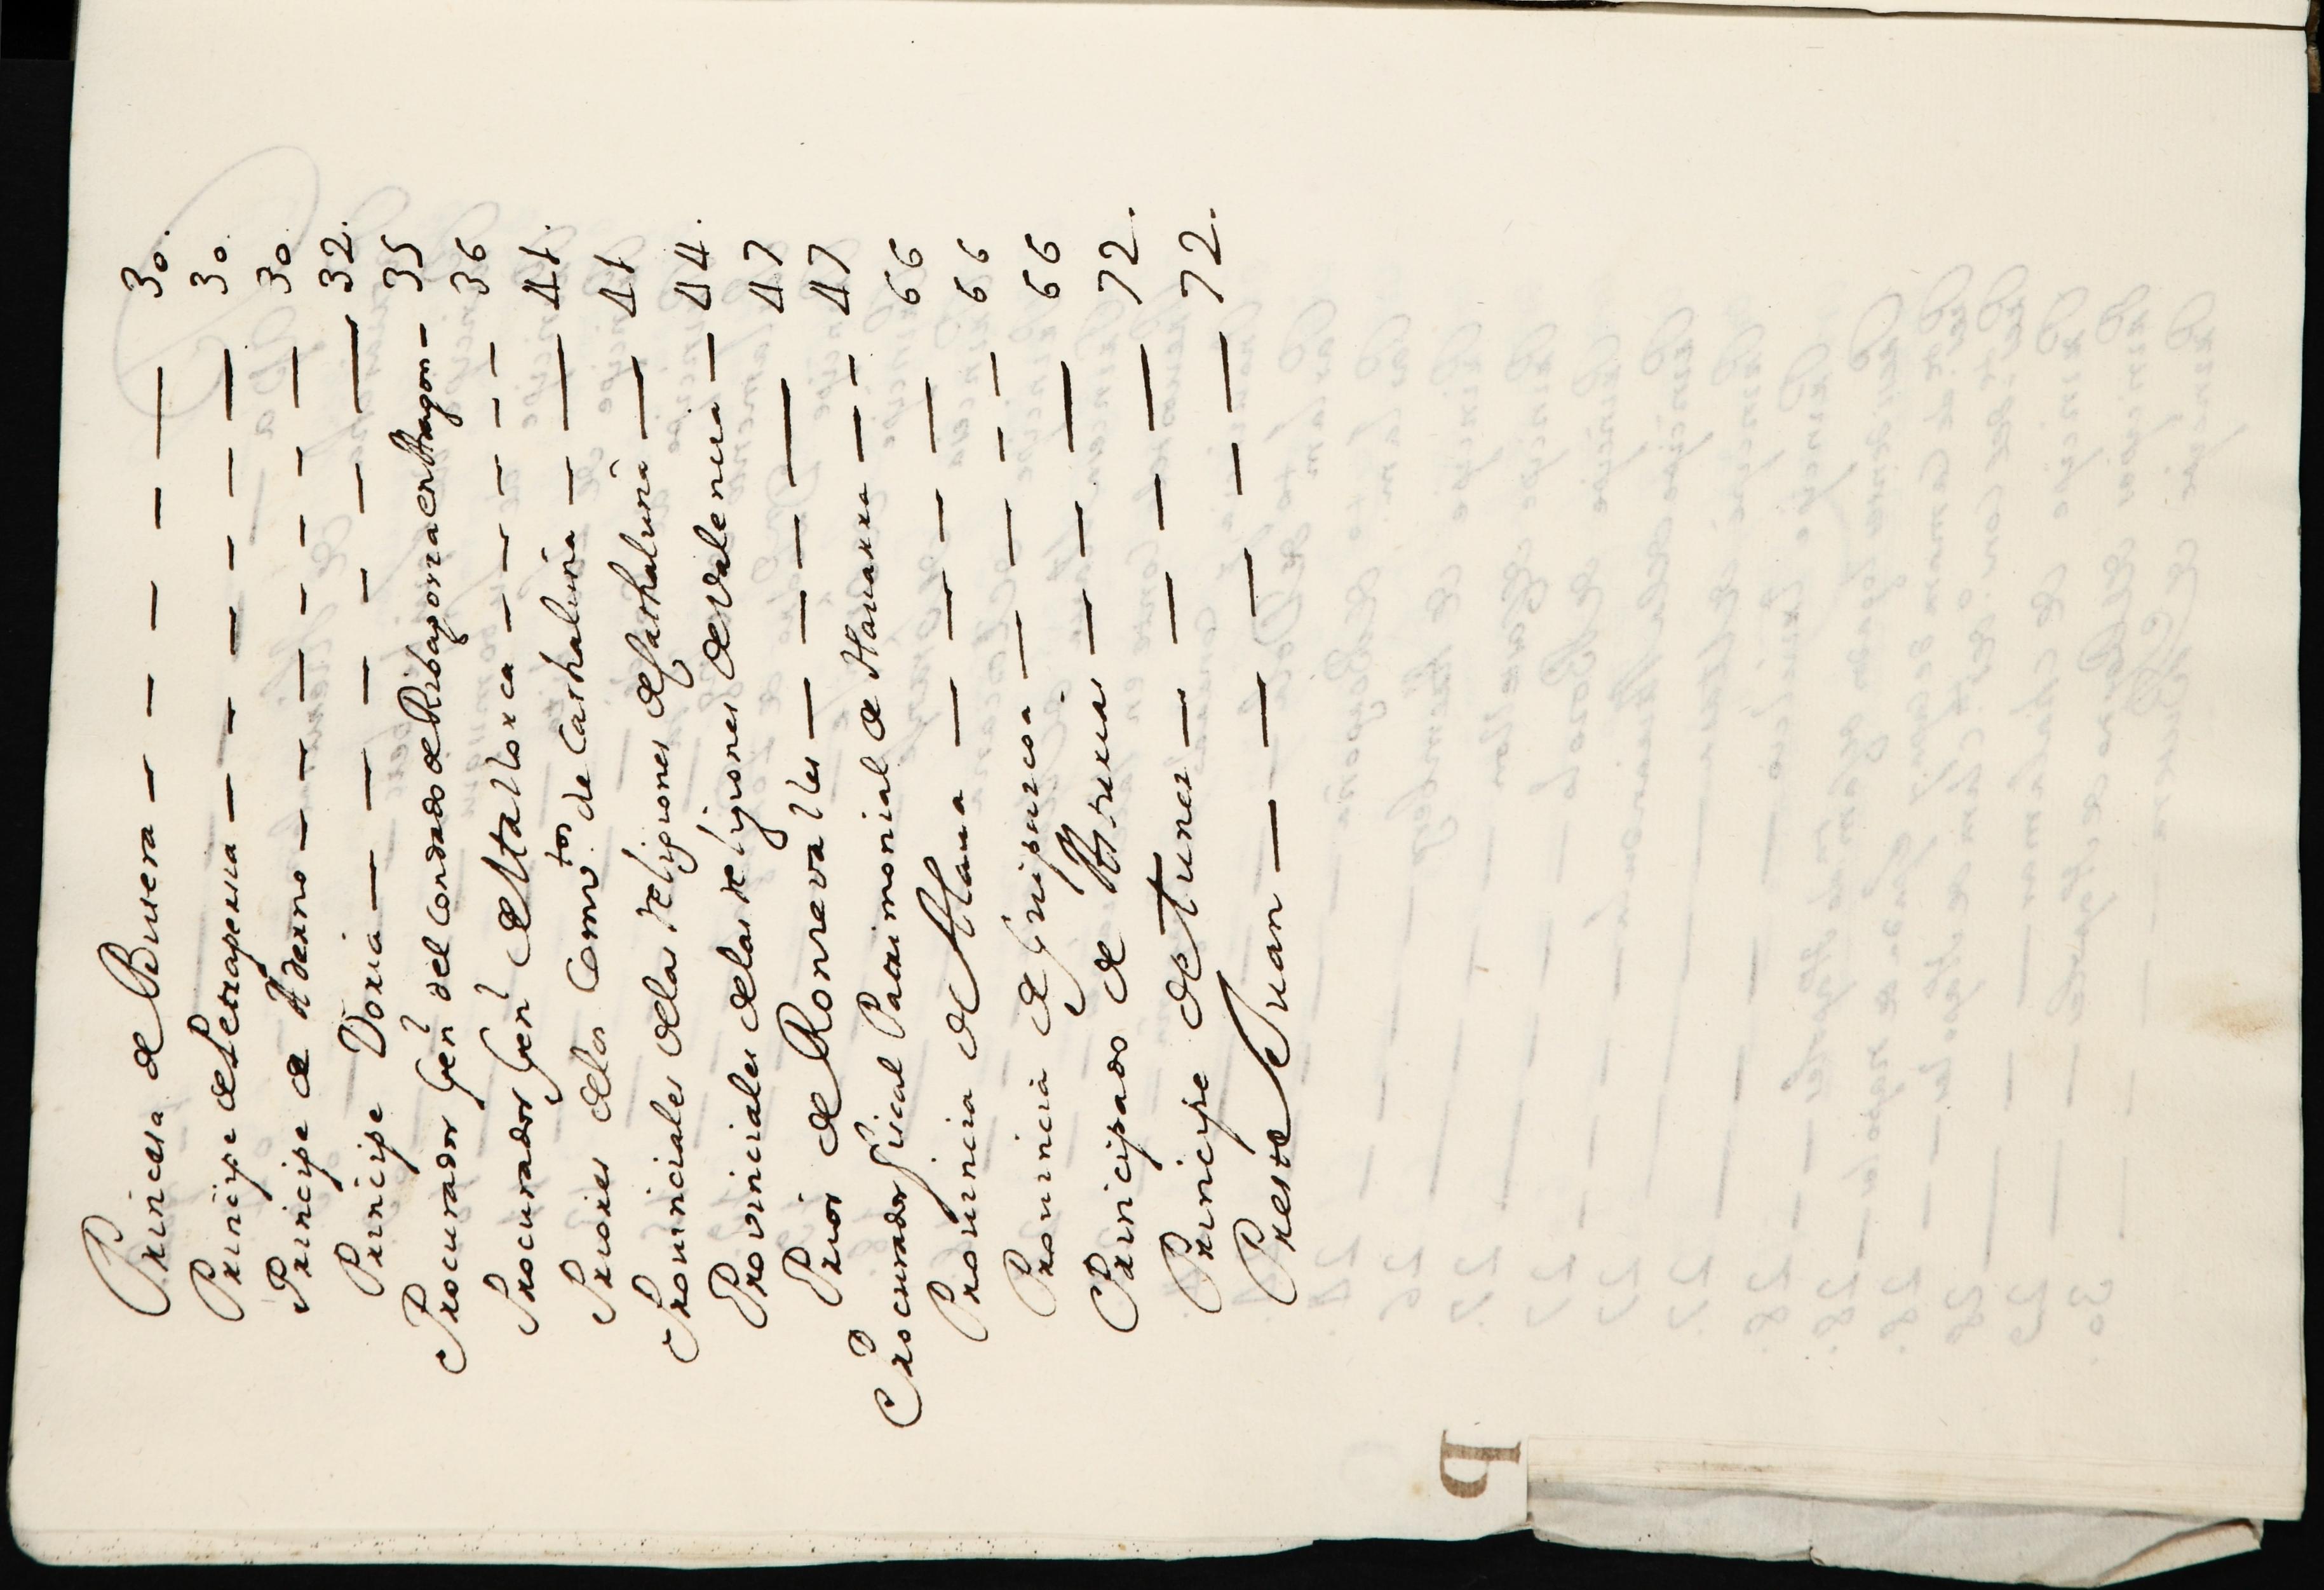 Princesa de Butera — 30.
Principe de Petrapersia — 30.
Principe de Aderno — 30.
Principe Doria — 32.
Procurador Gen.l del Condado de Ribagorza en Aragon — 35
Procurador Gen.l de Mallorca — 36
Priores delos Comv.tos de Cathaluña — 41.
Provinciales delas religiones de Cathaluña — 41
Provinciales delas religiones de Valencia — 44.
Prior de Ronzevalles — 47
Procurador fiscal Patrimonial de Navarra — 47
Provincia de Alava — 66
Provincia de Guipuzcoa — 66
Principado de Asturias — 66
Principe de Tunez — 72.
Preste Juan — 72.
P